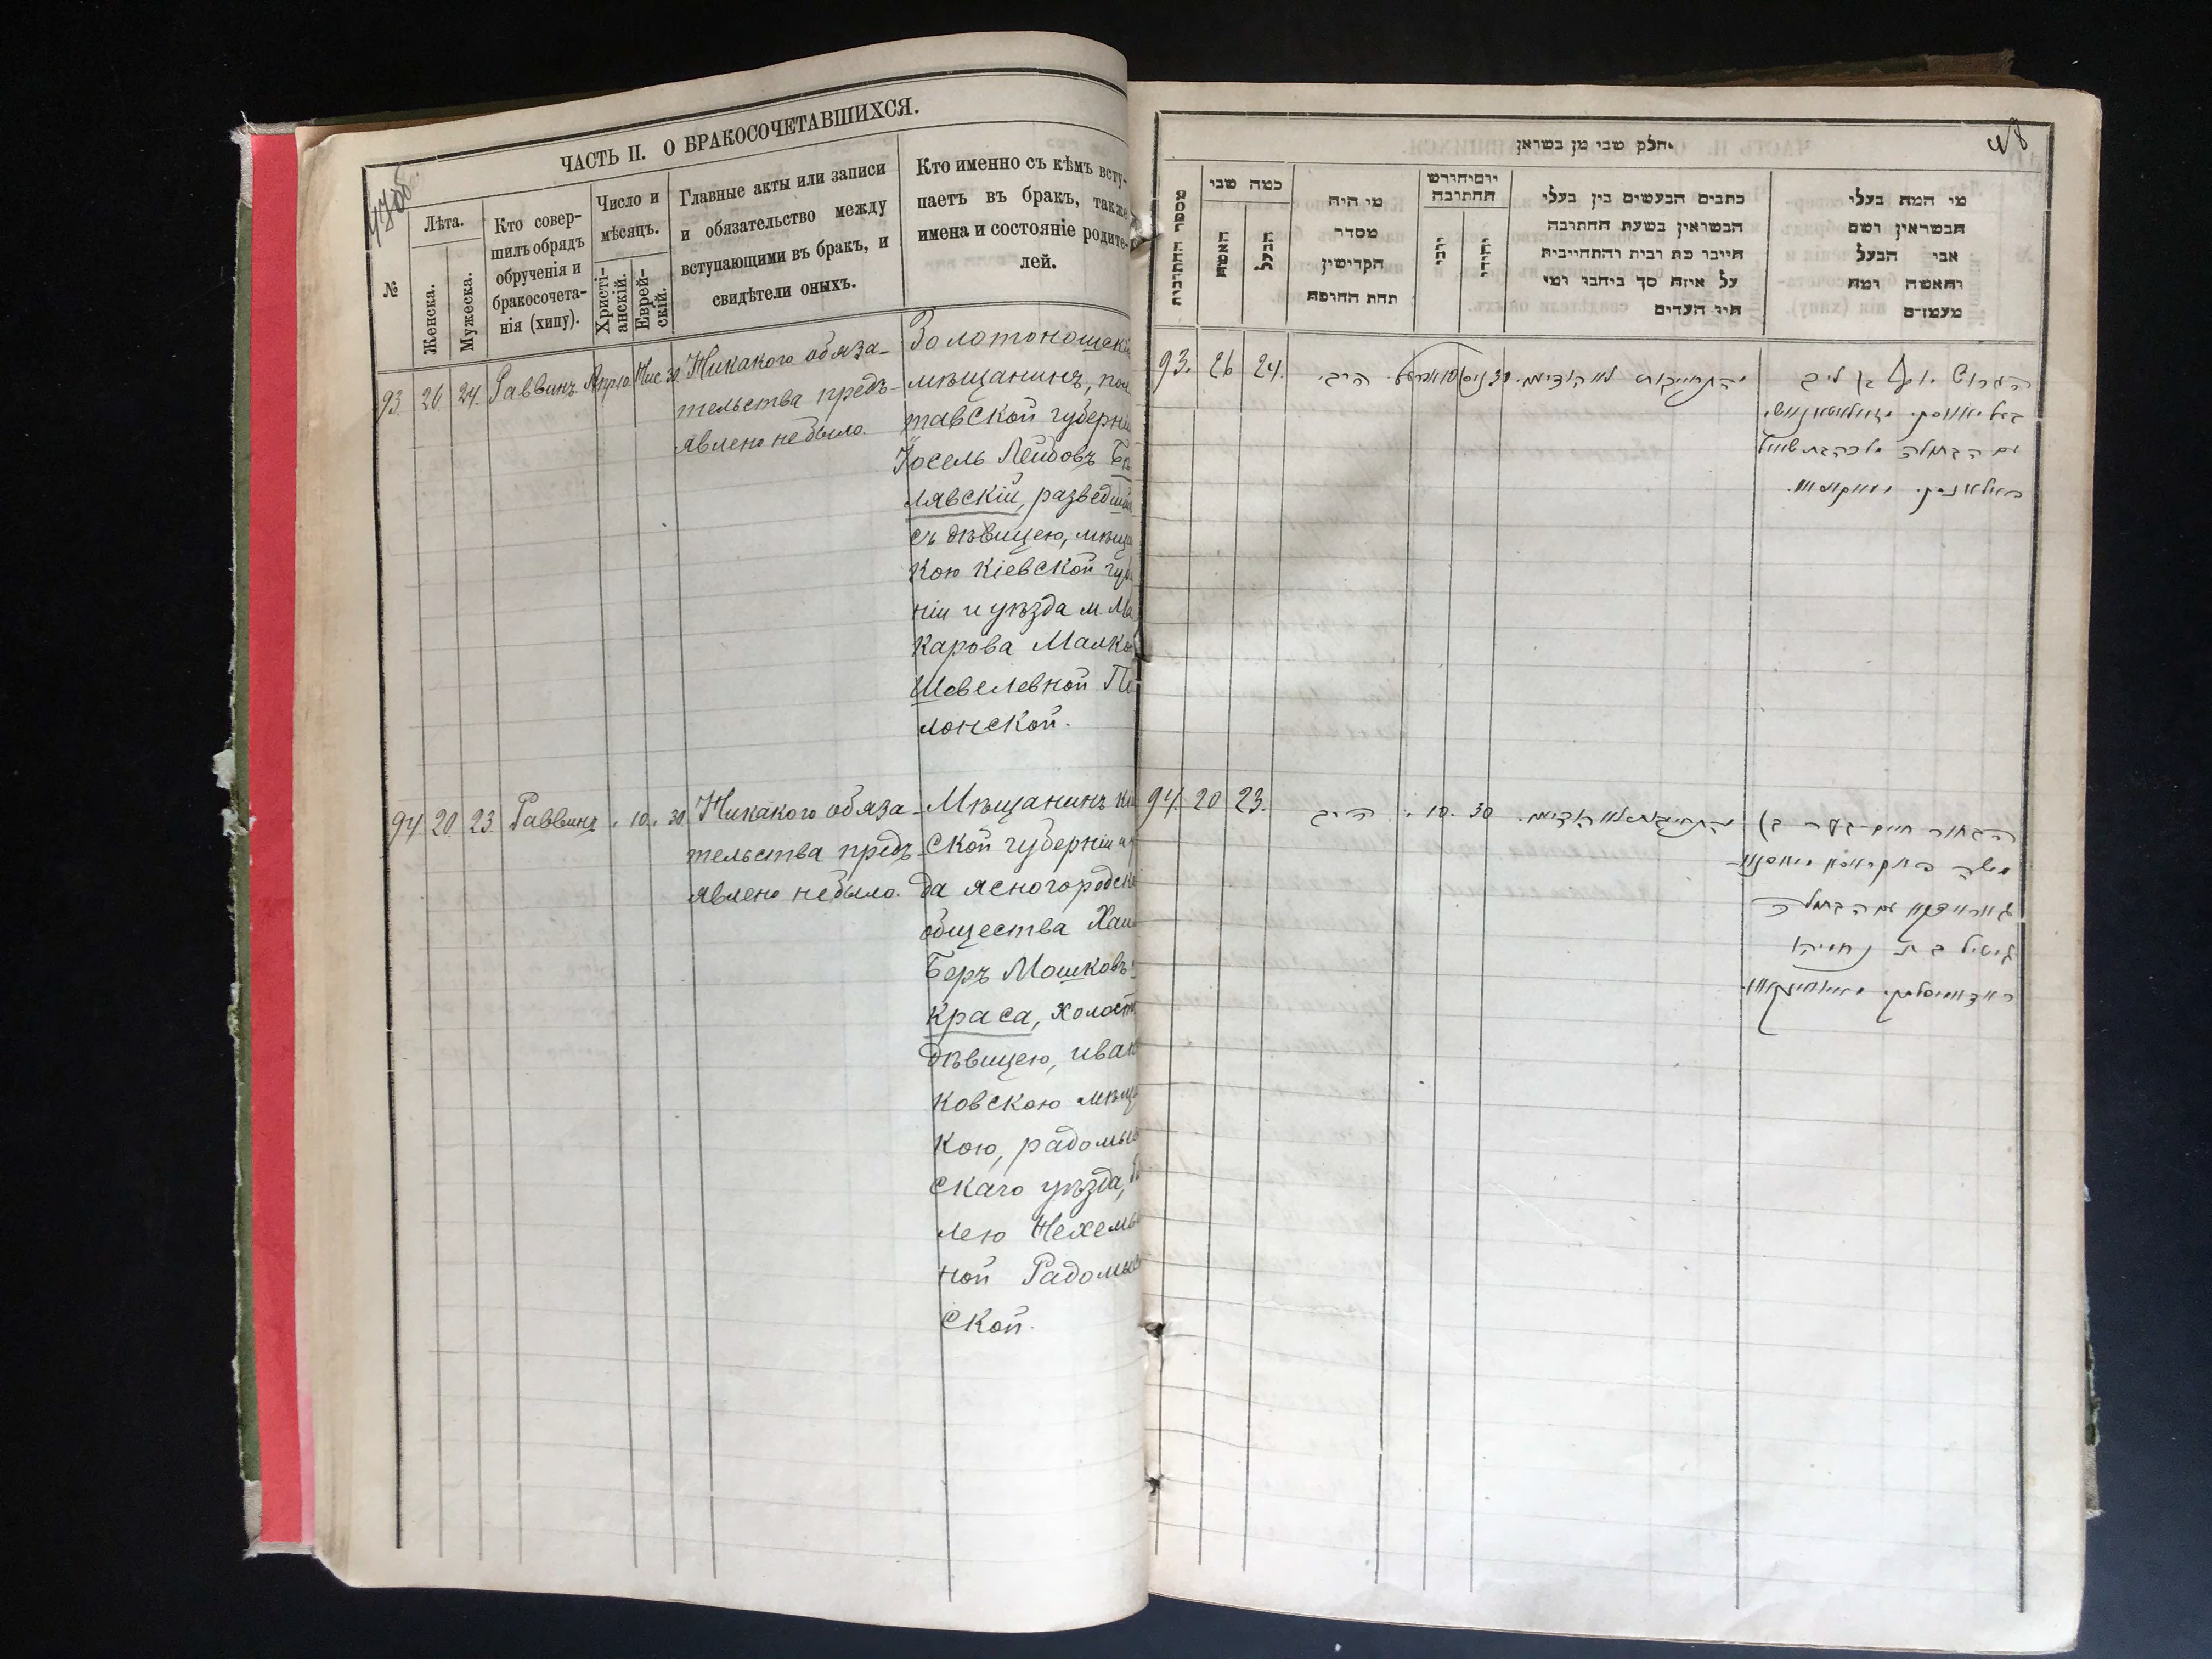 ЧАСТЬ II. О БРАКОСОЧЕТАВШИХСЯ.
47об
№
Лѣта.
Женска.
Мужеска.
Кто совер-
шилъ обрядъ
обрученія и
бракосочета-
нія (хипу).
Число и
мѣсяцъ.
Христі-
анскій.
Еврей-
скій.
Главные акты или записи
и обязательство между
вступающими въ бракъ, и
свидѣтели оныхъ.
Кто именно съ кѣмъ всту-
паетъ въ бракъ, также
имена и состояніе родите-
лей.
93. 26 24. Раввинъ. Апр 10. Нис 30.
Никакого обяза-
тельства предъ-
явлено не было.
Золотоношскі
мѣщанинъ, пол
тавской губерні
Іосель Лейбовъ
лявскій, разведшій
съ дѣвицею, мѣща
кою Кіевской губ
ніи и уѣзда м. Ма
карова Малкой
Шевелевной По
лонской.
94. 20. 23. Раввинъ " 10. " 30.
Никакого обяза-
тельства предъ-
явлено не было.
Мѣщанинъ кі
ской губерніи и у
да ясногородска
общества Хаи
Беръ Мошковъ
Краса, холост
дѣвицею, иван
ковскою мѣща
кою, радомысл
скаго уѣзда,
лею Нехемь
ной Радомысл
ской.
48
חלק שני מן בשראן
מספר החתונות
כמה שני
האשה
הבעל
מי היה
מסדר
הקדישין
תחת החופה
יום וחודש
החתונה
יוני
יהודי
כתבים הנעשים בין בעלי
הנשואין בשעת החתונה
חייבו כת ובית והתחייבות
על איזה סך ביחבו ומי
היו העדים
מי המה בעלי
הנשואין ושם
אבי הבעל
והאשה ומה
מעמדם
93. 26 24.
הרב.
התחייבות לא הודיעו.
הגרוש יוסף בן ליב
עם הבתולה מלכה בת שעוועל
94. 20 23.
הרב
" 10. 30
התחייבות לא הודיעו.
הבחור חיים-בער בן
משה
עם הבתולה
בת נחמיה